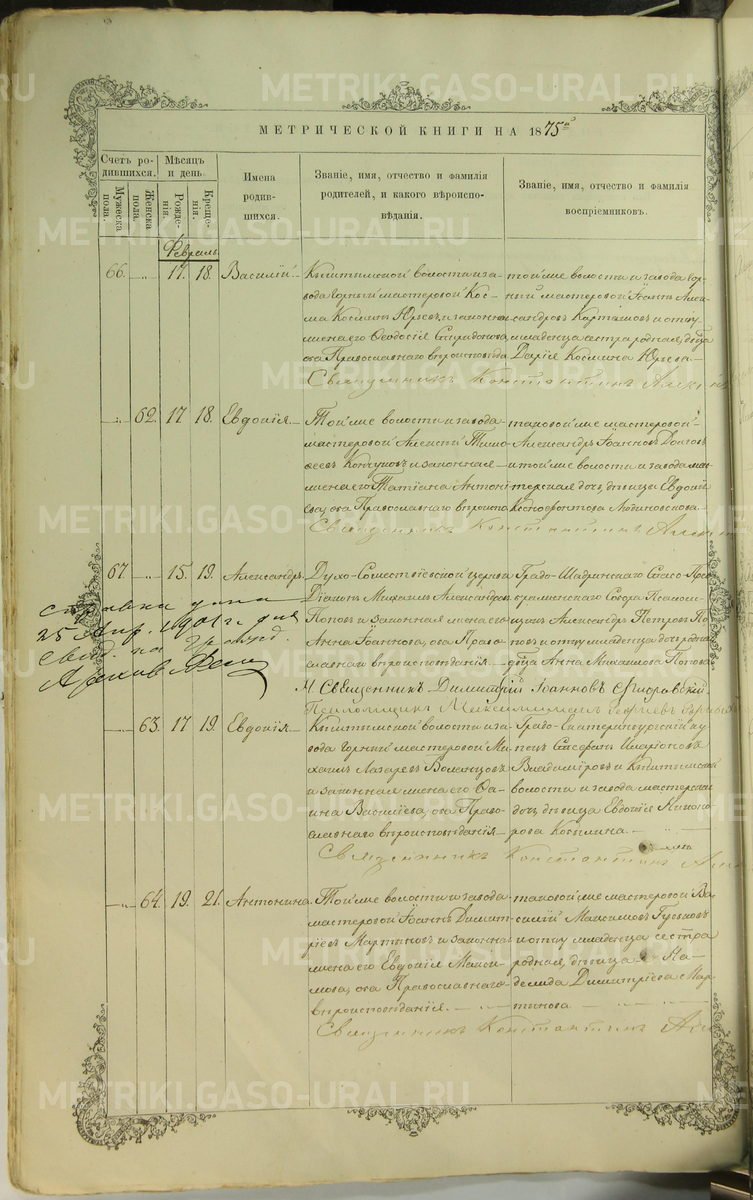 METRIKI.GASO-URAL.RU
МЕТРИЧЕСКОЙ КНИГИ НА 1875й
Счетъ родившихся.
Мѣсяцъ и день.
Мужеска пола.
Женска пола.
Рожденія.
Крещенія.
Имена родившихся.
Званіе, имя, отчество и фамилія
родителей, и какого вѣроиспо-
вѣданія.
Званіе, имя, отчество и фамилія
воспріемниковъ.
Февраль.
66. 17. 18. Василій
Кыштымской волости и за-
вода горный мастеровой Кос-
ма Косминъ Юрьевъ и законная
жена его Ѳеодосія Спиридонова,
оба Православнаго вѣроисповѣда
той же волости и завода гор-
ный мастеровой Іоаннъ Алек-
сандровъ Карташовъ и отцу
младенца сестра родная, дѣвица
Дарія Космина Юрьева.
Священникъ Константинъ
62. 17 18. Евдокія
Той же волости и завода
мастеровой Алексѣй Тимо-
ѳеевъ и законная
жена его Татіана Антоні
ева, оба Православнаго вѣроиспо
таковой же мастеровой
Александръ Іоанновъ
и той же волости и завода мас-
терская дочь, дѣвица Евдокія
Ксенофонтова
Священникъ Константинъ
67 15. 19. Александръ
Духо-Сошествіевской церкви
Діаконъ Михаилъ Александровъ
Поповъ и законная жена его
Анна Іоаннова, оба Право-
славнаго вѣроисповѣданія
Градо-Шадринскаго Спасо-Прео
браженскаго Собора Псалом-
щикъ Александръ Петровъ По
повъ и отцу младенца дочь родная
дѣвица Анна Михаилова Попова
справка дана
25 Апр. 1901 г. для
Священникъ Димитрій Іоанновъ
Псаломщикъ
63. 17 19. Евдокія
Кыштымской волости и за-
вода горный мастеровой Ми-
хаилъ Лазаревъ
и законная жена его
Василіева, оба Право-
славнаго вѣроисповѣданія
Градо-Екатеринбургскій ку
пецъ Стефанъ Иларіоновъ
Владиміровъ и Кыштымской
волости и завода мастерская
дочь, дѣвица Евдокія Никано-
рова Костина.
Священникъ Константинъ
64. 19. 21. Антонина
Той же волости и завода
мастеровой Іоаннъ Димит-
ріевъ Мартыновъ и законная
жена его Евдокія Макси-
мова, оба Православнаго
вѣроисповѣданія.
таковой же мастеровой Ва
силій Максимовъ Гусевковъ
и отцу младенца сестра
родная, дѣвица На-
дежда Димитріева Мар-
тынова
Священникъ Константинъ